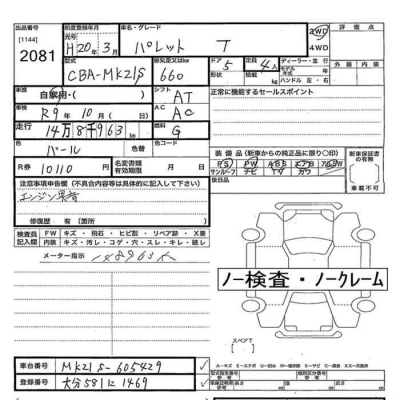 出品番号
[1144]
2081
初度登録年月
H20年3月
車名・グレード
パレット T
2WD
4WD
評価点
外装
内装
型式
CBA-MK21S
排気量又は
660
ドア
5
形状
定員
4人
積載
ディーラー・並行
モデル年式
ハンドル 左・右
車歴
自家用・( )
シフト
AT
正常に機能するセールスポイント
車検
R9年10月( 日)
AC
AC
走行
14万8千963km
燃料
G
色
パール
色替
色コード
R券
10110 円
名変書類有効期限
装備品(新車からの純正品に限り〇印)
PS PW ABS エアB
サンルーフ ナビ TV カワ
新車保証書の有無
車載不可
注意事項申告欄(不具合内容等は具体的に記入して下さい)
エンジン異音
後日品
修復歴 有(箇所 )
検査員記入欄
FW キズ・飛石・ヒビ割・リペア跡・X要
内装 キズ・汚レ・コゲ・穴・スレ・キレ・破レ
メーター指示 148963K
ノー検査・ノークレーム
スペアT
車台番号
MK21S-605429
登録番号
大分581に1469